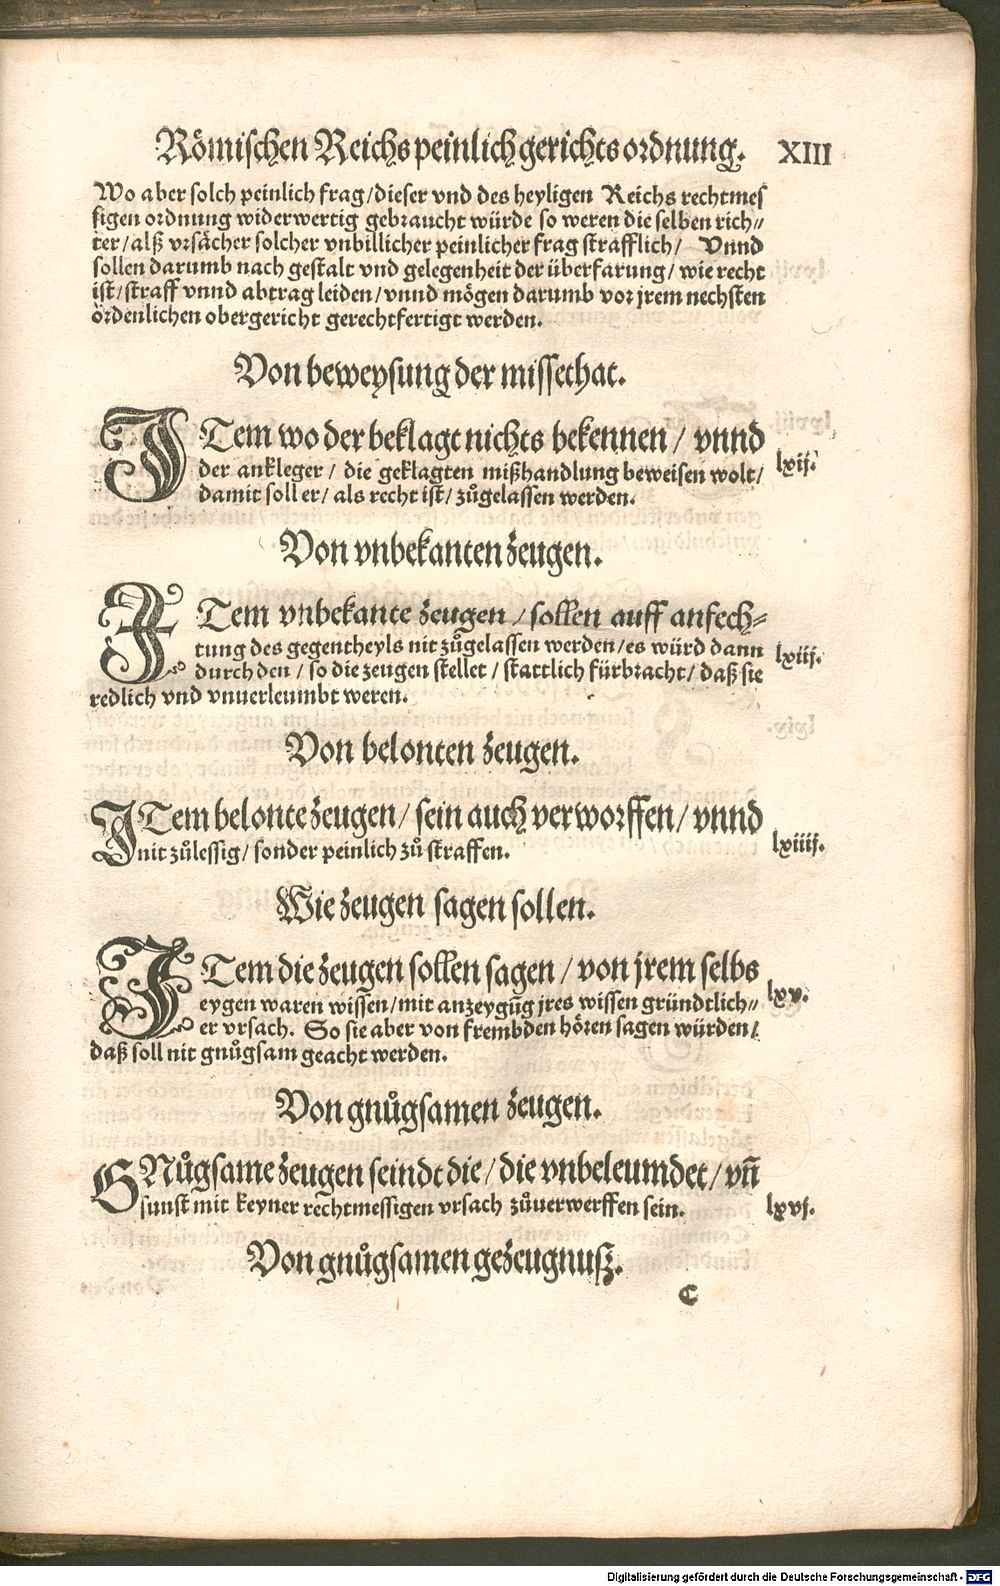 Römischen Reichs peinlich gerichts ordnung. XIII
Wo aber solch peinlich frag / dieser vnd des heyligen Reichs rechtmes
sigen ordnung widerwertig gebraucht würde so weren die selben rich⸗
ter / alß vrsächer solcher vnbillicher peinlicher frag strafflich / Vnnd
sollen darumb nach gestalt vnd gelegenheit der überfarung / wie recht
ist / straff vnnd abtrag leiden / vnnd mögen darumb vor jrem nechsten
ördenlichen obergericht gerechtfertigt werden.
Von beweysung der missethat.
ITem wo der beklagt nichts bekennen / vnnd
der ankleger / die geklagten mißhandlung beweisen wolt /
lxij.
damit soll er / als recht ist / zůgelassen werden.
Von vnbekanten zeugen.
ITem vnbekante zeugen / sollen auff anfech⸗
tung des gegentheyls nit zůgelassen werden / es würd dann
lxiij.
durch den / so die zeugen stellet / stattlich fürbracht / daß sie
redlich vnd vnuerleumbt weren.
Von belonten zeugen.
ITem belonte zeugen / sein auch verworffen / vnnd
nit zůlessig / sonder peinlich zů straffen.
lxiiij.
Wie zeugen sagen sollen.
ITem die zeugen sollen sagen / von jrem selbs
eygen waren wissen / mit anzeygūg jres wissen gründtlich⸗
lxv.
er vrsach. So sie aber von frembden hören sagen würden /
daß soll nit gnůgsam geacht werden.
Von gnůgsamen zeugen.
GNůgsame zeugen seindt die / die vnbeleumdet / vn̄
sunst mit keyner rechtmessigen vrsach zůuerwerffen sein.
lxvj.
Von gnůgsamen gezeugnusz.
C
Digitalisierung gefördert durch die Deutsche Forschungsgemeinschaft - DFG